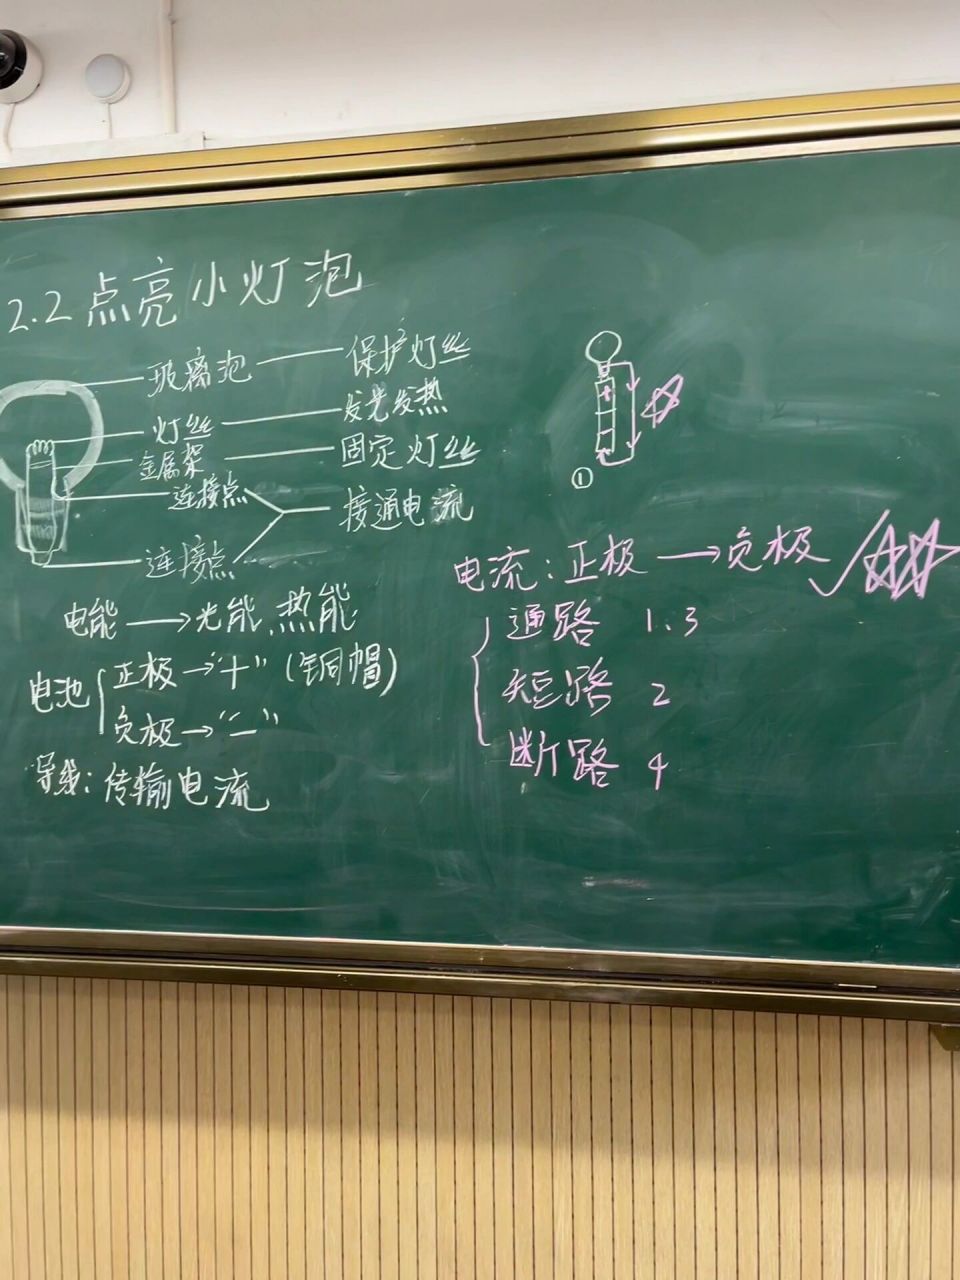 2.2点亮小灯泡
玻璃泡 —— 保护灯丝
灯丝 —— 发光发热
金属架 —— 固定灯丝
连接点
接通电流
连接点
电能 → 光能、热能
电池
正极→“+”(铜帽)
负极→“-”
导线:传输电流
+
①
电流:正极→负极
通路 1.3
短路 2
断路 4